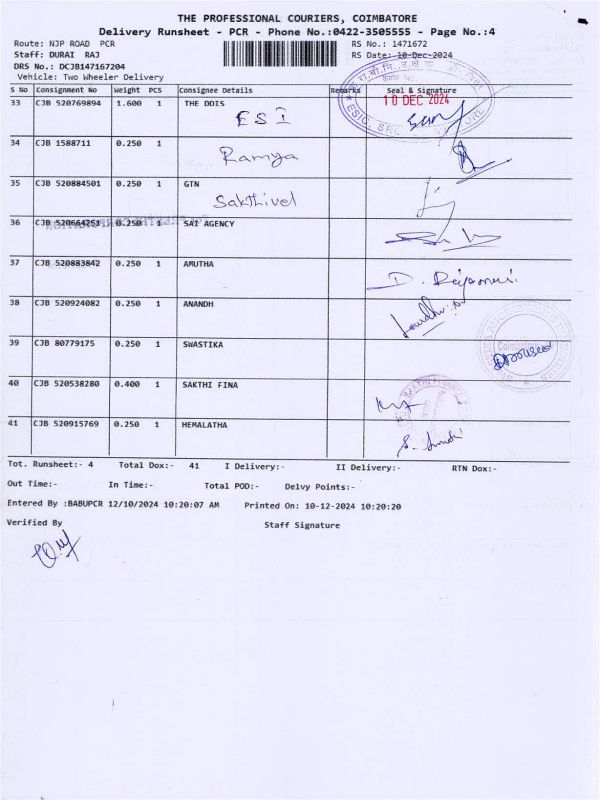 THE PROFESSIONAL COURIERS, COIMBATORE
Delivery Runsheet - PCR - Phone No.:0422-3505555 - Page No.:4
Route: NJP ROAD PCR RS No.: 1471672
Staff: DURAI RAJ RS Date: 10-Dec-2024
DRS No.: DCJB147167204
Vehicle: Two Wheeler Delivery
S No Consignment No Weight PCS Consignee Details Remarks Seal & Signature
33 CJB 520769894 1.600 1 THE DDIS 10 DEC 2024
ESI
34 CJB 1588711 0.250 1
Ramya
35 CJB 520884501 0.250 1 GTN
Sakthivel
36 CJB 520664251 0.250 1 SAI AGENCY
37 CJB 520883842 0.250 1 AMUTHA
D. Rajamani
38 CJB 520924082 0.250 1 ANANDH
39 CJB 80779175 0.250 1 SWASTIKA
Coimbatore
40 CJB 520538280 0.400 1 SAKTHI FINA
41 CJB 520915769 0.250 1 HEMALATHA
Tot. Runsheet:- 4 Total Dox:- 41 I Delivery:- II Delivery:- RTN Dox:-
Out Time:- In Time:- Total POD:- Delvy Points:-
Entered By :BABUPCR 12/10/2024 10:20:07 AM Printed On: 10-12-2024 10:20:20
Verified By Staff Signature